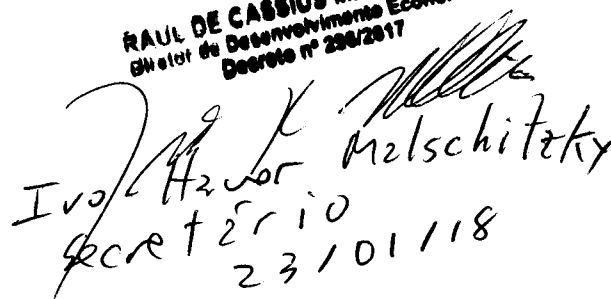 RAUL DE CASSIUS
Diretor de Desenvolvimento Econo
Decreto nº 296/2017
Ivo Haver Malschitzky
secretário
23/01/18